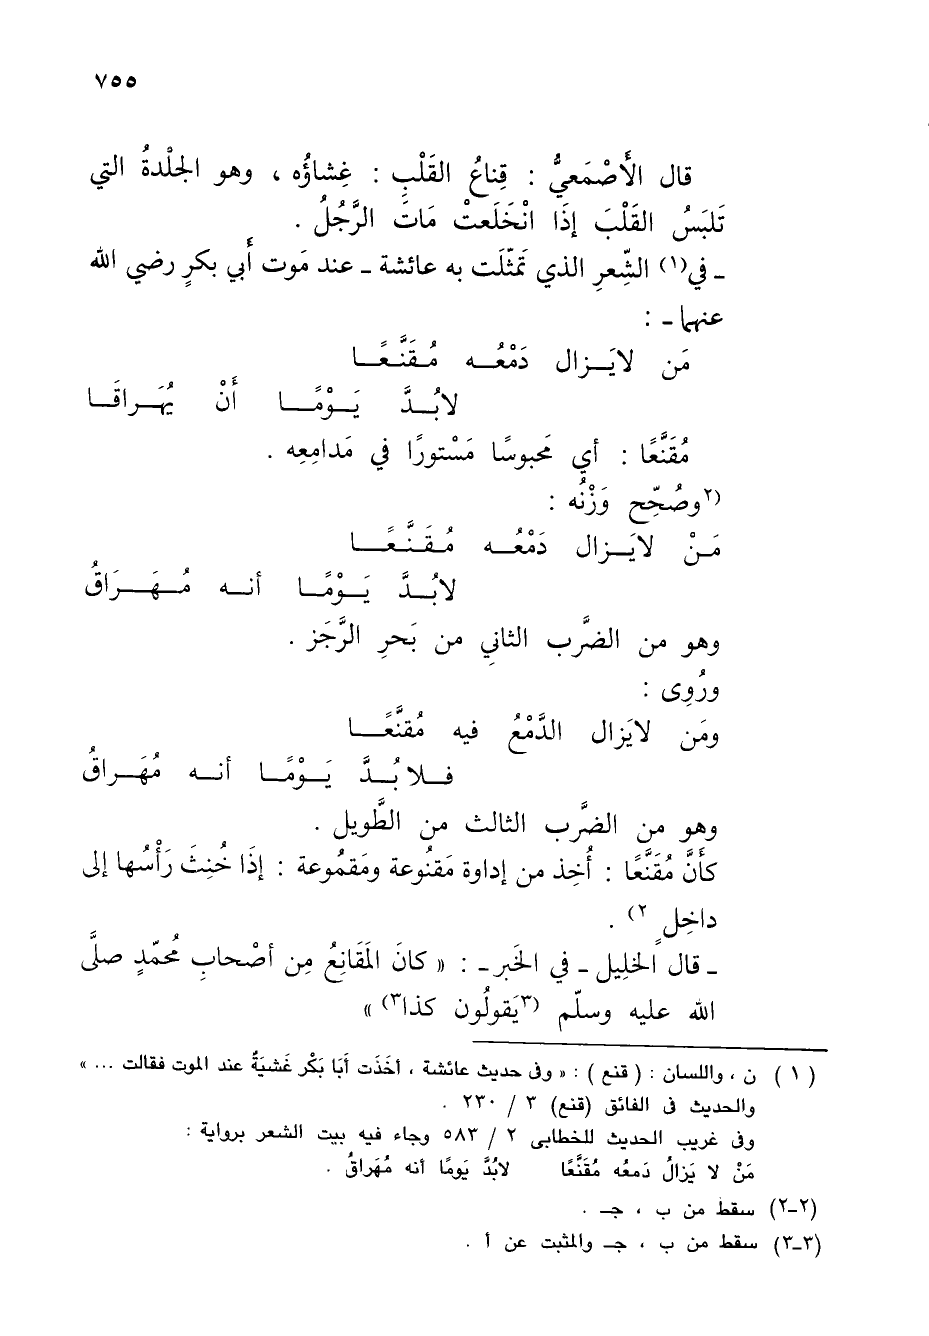 ٧٥٥
قال الأَصْمَعيُّ : قِناعُ القَلْبِ : غِشاؤُه ، وهو الجِلْدةُ التي
تَلبَسُ القَلْبَ إذَا انْخَلَعتْ مَاتَ الرَّجُلُ .
ـ في(١) الشِّعرِ الذي تمثّلَت به عائشة ـ عند مَوت أَبي بكرٍ رضي الله
عنهما ـ :
مَن لايَـزال دَمْعُـه مُقَنَّعًـا
لابُـدَّ يَـوْمًـا أَنْ يُهَـراقَـا
مُقَنَّعًا : أي مَحبوسًا مَسْتورًا في مَدامِعِه .
(٢وصُحِّح وَزْنُه :
مَـنْ لايَـزال دَمْعُـه مُـقَـنَّعًـا
لابُـدَّ يَـوْمًـا أنـه مُـهَـرَاقُ
وهو من الضَّرب الثاني من بَحرِ الرَّجَز .
ورُوِى :
ومَن لايَزال الدَّمْعُ فيه مُقنَّعًـا
فـلابُـدَّ يَـوْمًـا أنـه مُهَـراقُ
وهو من الضَّرب الثالث من الطَّويل .
كأَنَّ مُقَنَّعًا : أُخِذ من إداوة مَقنُوعة ومَقمُوعة : إذَا خُنِثَ رَأْسُها إلى
داخِلٍ ٢) .
ـ قال الخليل ـ في الخَبر ـ : « كانَ المَقَانِعُ مِن أصْحابِ مُحمّدٍ صلَّى
الله عليه وسلّم (٣يَقولُون كذا٣) »
(١) ن ، واللسان : ( قنع ) : « وفى حديث عائشة ، أخَذَت أبَا بَكْر غَشيَةٌ عند الموت فقالت ... »
والحديث فى الفائق (قنع) ٣ / ٢٣٠ .
وفى غريب الحديث للخطابى ٢ / ٥٨٣ وجاء فيه بيت الشعر برواية :
مَنْ لا يَزالُ دَمعُه مُقَنَّعًا لابُدَّ يَومًا أنه مُهَراقُ .
(٢ـ٢) سقط من ب ، جـ .
(٣ـ٣) سقط من ب ، جـ والمثبت عن أ .